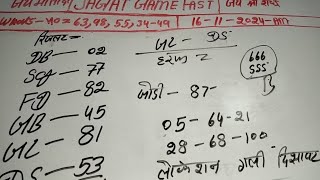 JAGAT GAME FAST
WANG-NO=63,98,55,34-49 16-11-2024-
DB - 02
77
FD - 82
GB - 45
GL - 81
DS - 53
GL - DS
हरूफ
666
555
जोड़ी - 87-
05-64-21
28-68-100
लोकेशन गली दिसावर